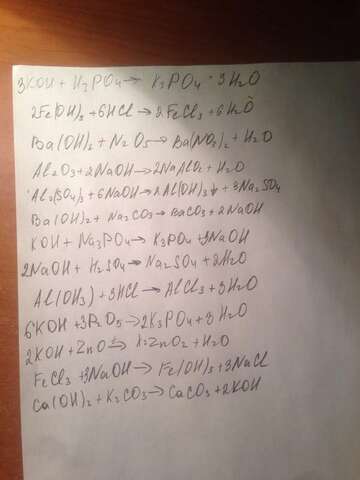 3KOH + H3PO4 → K3PO4 · 3H2O
2Fe(OH)3 + 6HCl → 2FeCl3 + 6H2O
Ba(OH)2 + N2O5 → Ba(NO3)2 + H2O
Al2O3 + 2NaOH → 2NaAlO2 + H2O
Al2(SO4)3 + 6NaOH → 2Al(OH)3↓ + 3Na2SO4
Ba(OH)2 + Na2CO3 → BaCO3 + 2NaOH
KOH + Na3PO4 → K3PO4 + 3NaOH
2NaOH + H2SO4 → Na2SO4 + 2H2O
Al(OH3) + 3HCl → AlCl3 + 3H2O
6KOH + 3P2O5 → 2K3PO4 + 3H2O
2KOH + ZnO → K2ZnO2 + H2O
FeCl3 + 3NaOH → Fe(OH)3 + 3NaCl
Ca(OH)2 + K2CO3 → CaCO3 + 2KOH